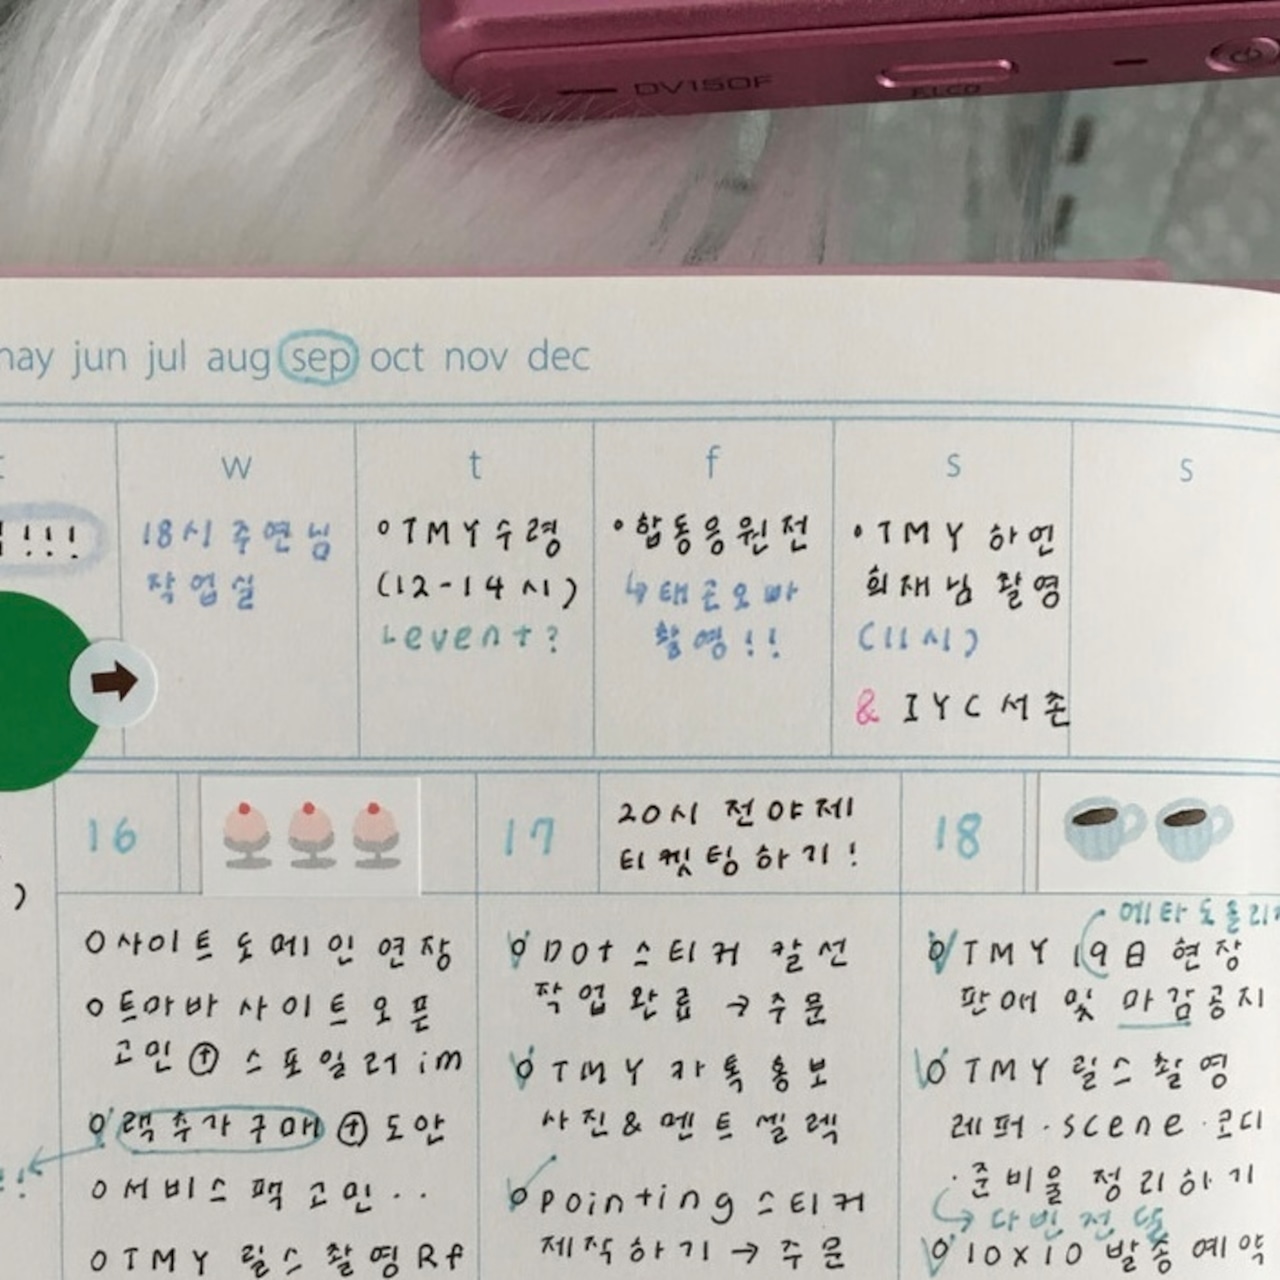 DV150F
F.LCD
may jun jul aug sep oct nov dec
w
t
f
s
s
!!!
18시 주연님
작업실
TMY수령
(12-14시)
event?
합동응원전
↳태근오빠
촬영!!
TMY 하언
희재님 촬영
(11시)
& IYC서촌
16
17
20시 전야제
티켓팅하기!
18
)
사이트 도메인 연장
트마바 사이트 오픈
고민 + 스포일러im
랙추가구매 + 도안
서비스팩 고민..
TMY 릴스 촬영 Rf
Dot 스티커 칼선
작업완료 → 주문
TMY 카톡 홍보
사진&멘트 셀렉
pointing 스티커
제작하기 → 주문
메타도올리
TMY 19日 현장
판매 및 마감공지
TMY 릴스 촬영
레퍼·scene·코디
·준비물 정리하기
10x10 발송 예약